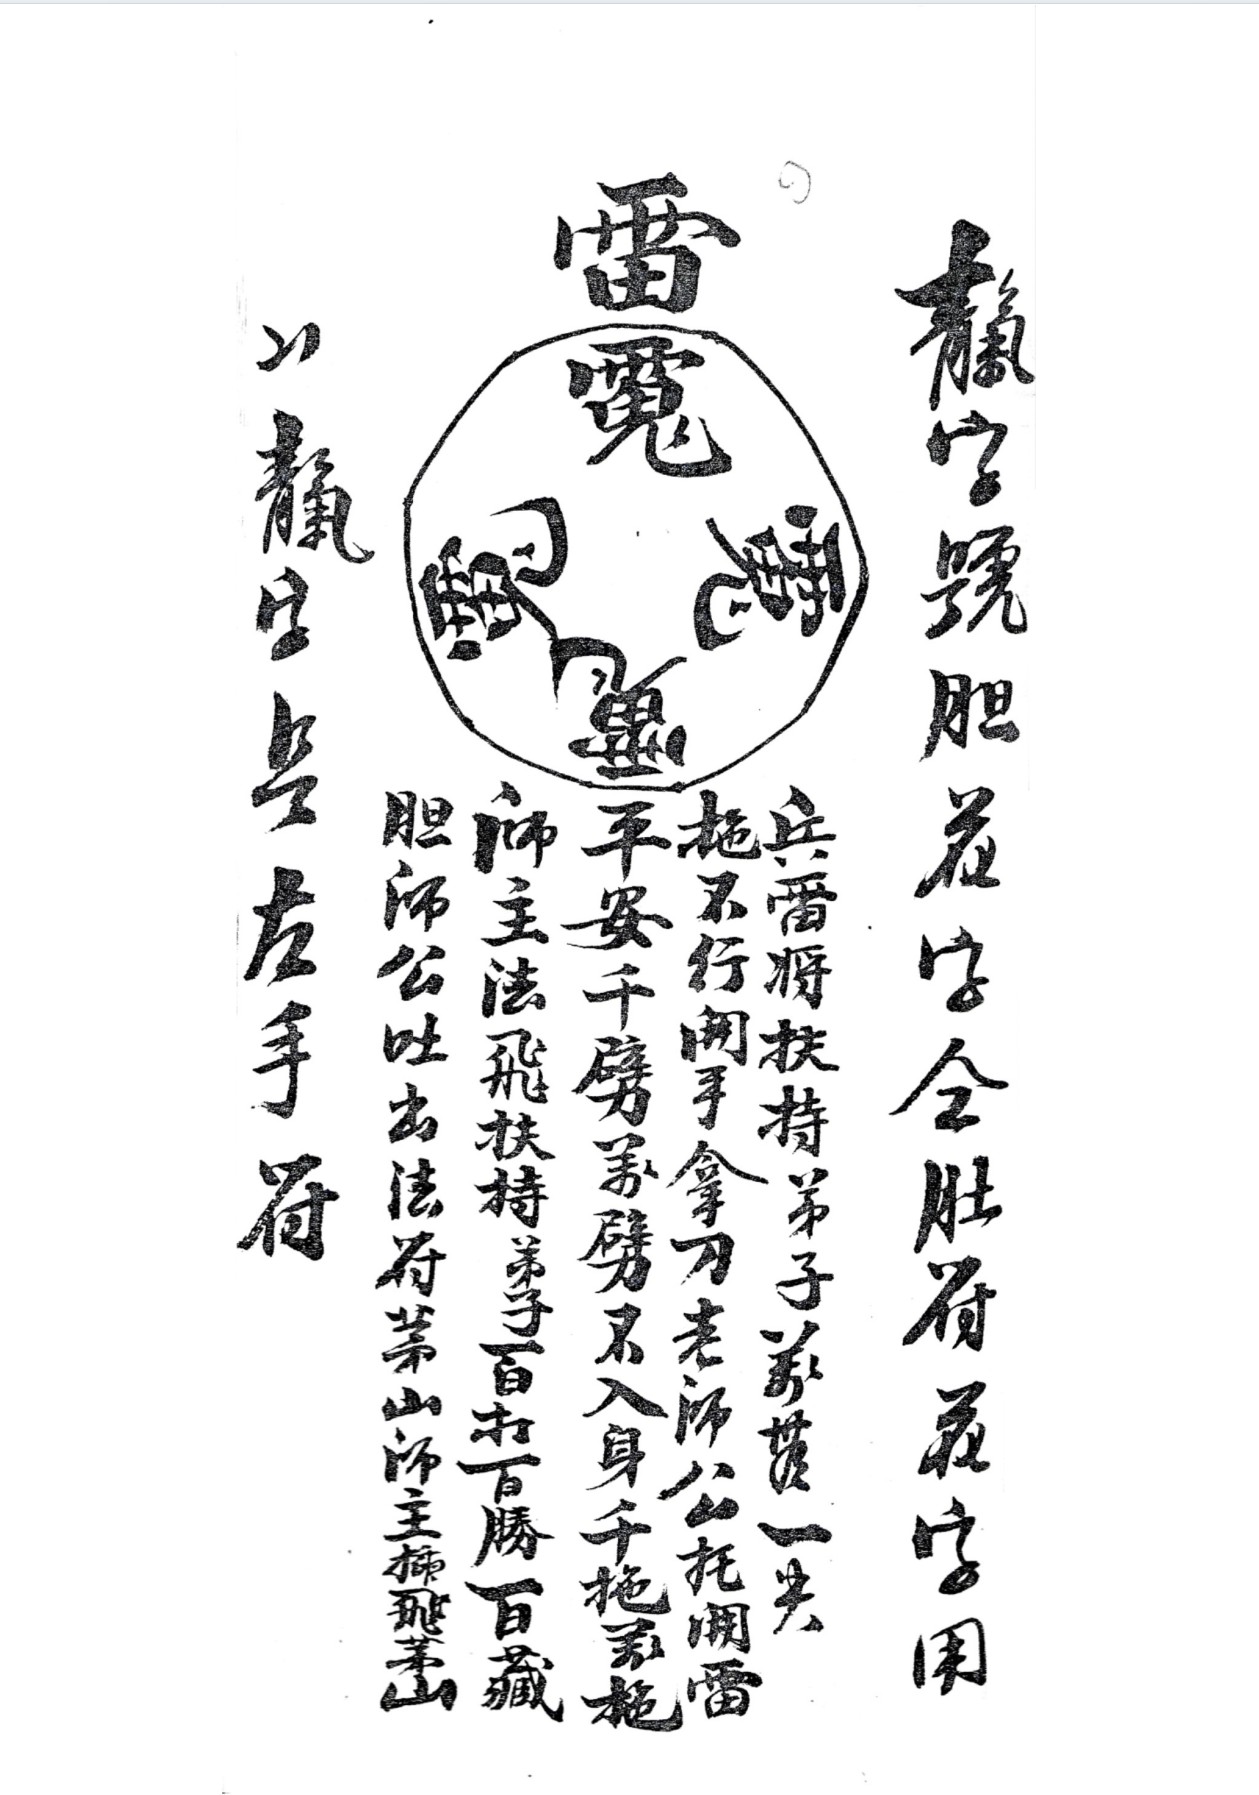 字號胆花字仝肚符花字用
雷
胆師公吐出法符茅山師主插飛茅山
師主法飛扶持弟子百打百勝百藏
平安千劈萬劈不入身千拖萬拖
拖不行開手拿刀老師公托開雷
兵雷将扶持弟子萬無一失
字兵左手符